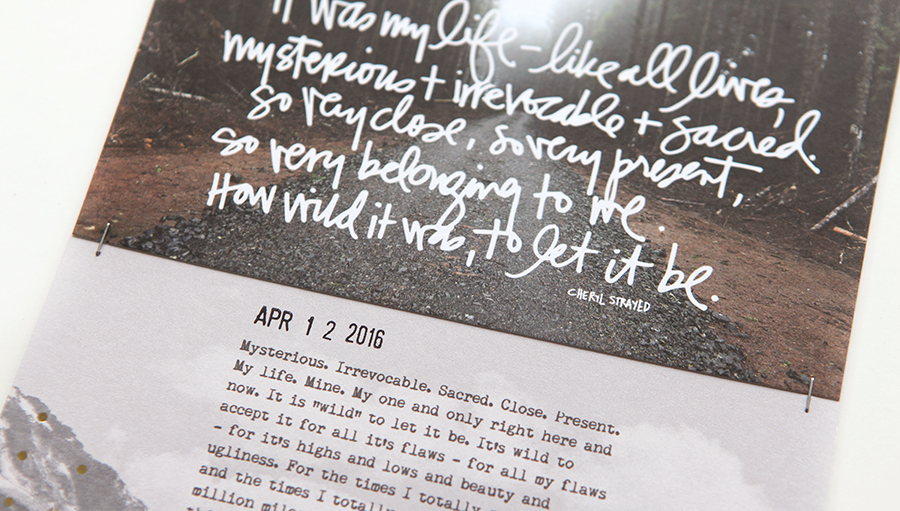 it was my life - like all lives,
mysterious + irrevocable + sacred.
so very close, so very present,
so very belonging to me.
How wild it was, to let it be.
CHERYL STRAYED
APR 1 2 2016
Mysterious. Irrevocable. Sacred. Close. Present.
My life. Mine. My one and only right here and
now. It is "wild" to let it be. It's wild to
accept it for all it's flaws - for all my flaws
- for it's highs and lows and beauty and
ugliness. For the times I totally
and the times I totally
million